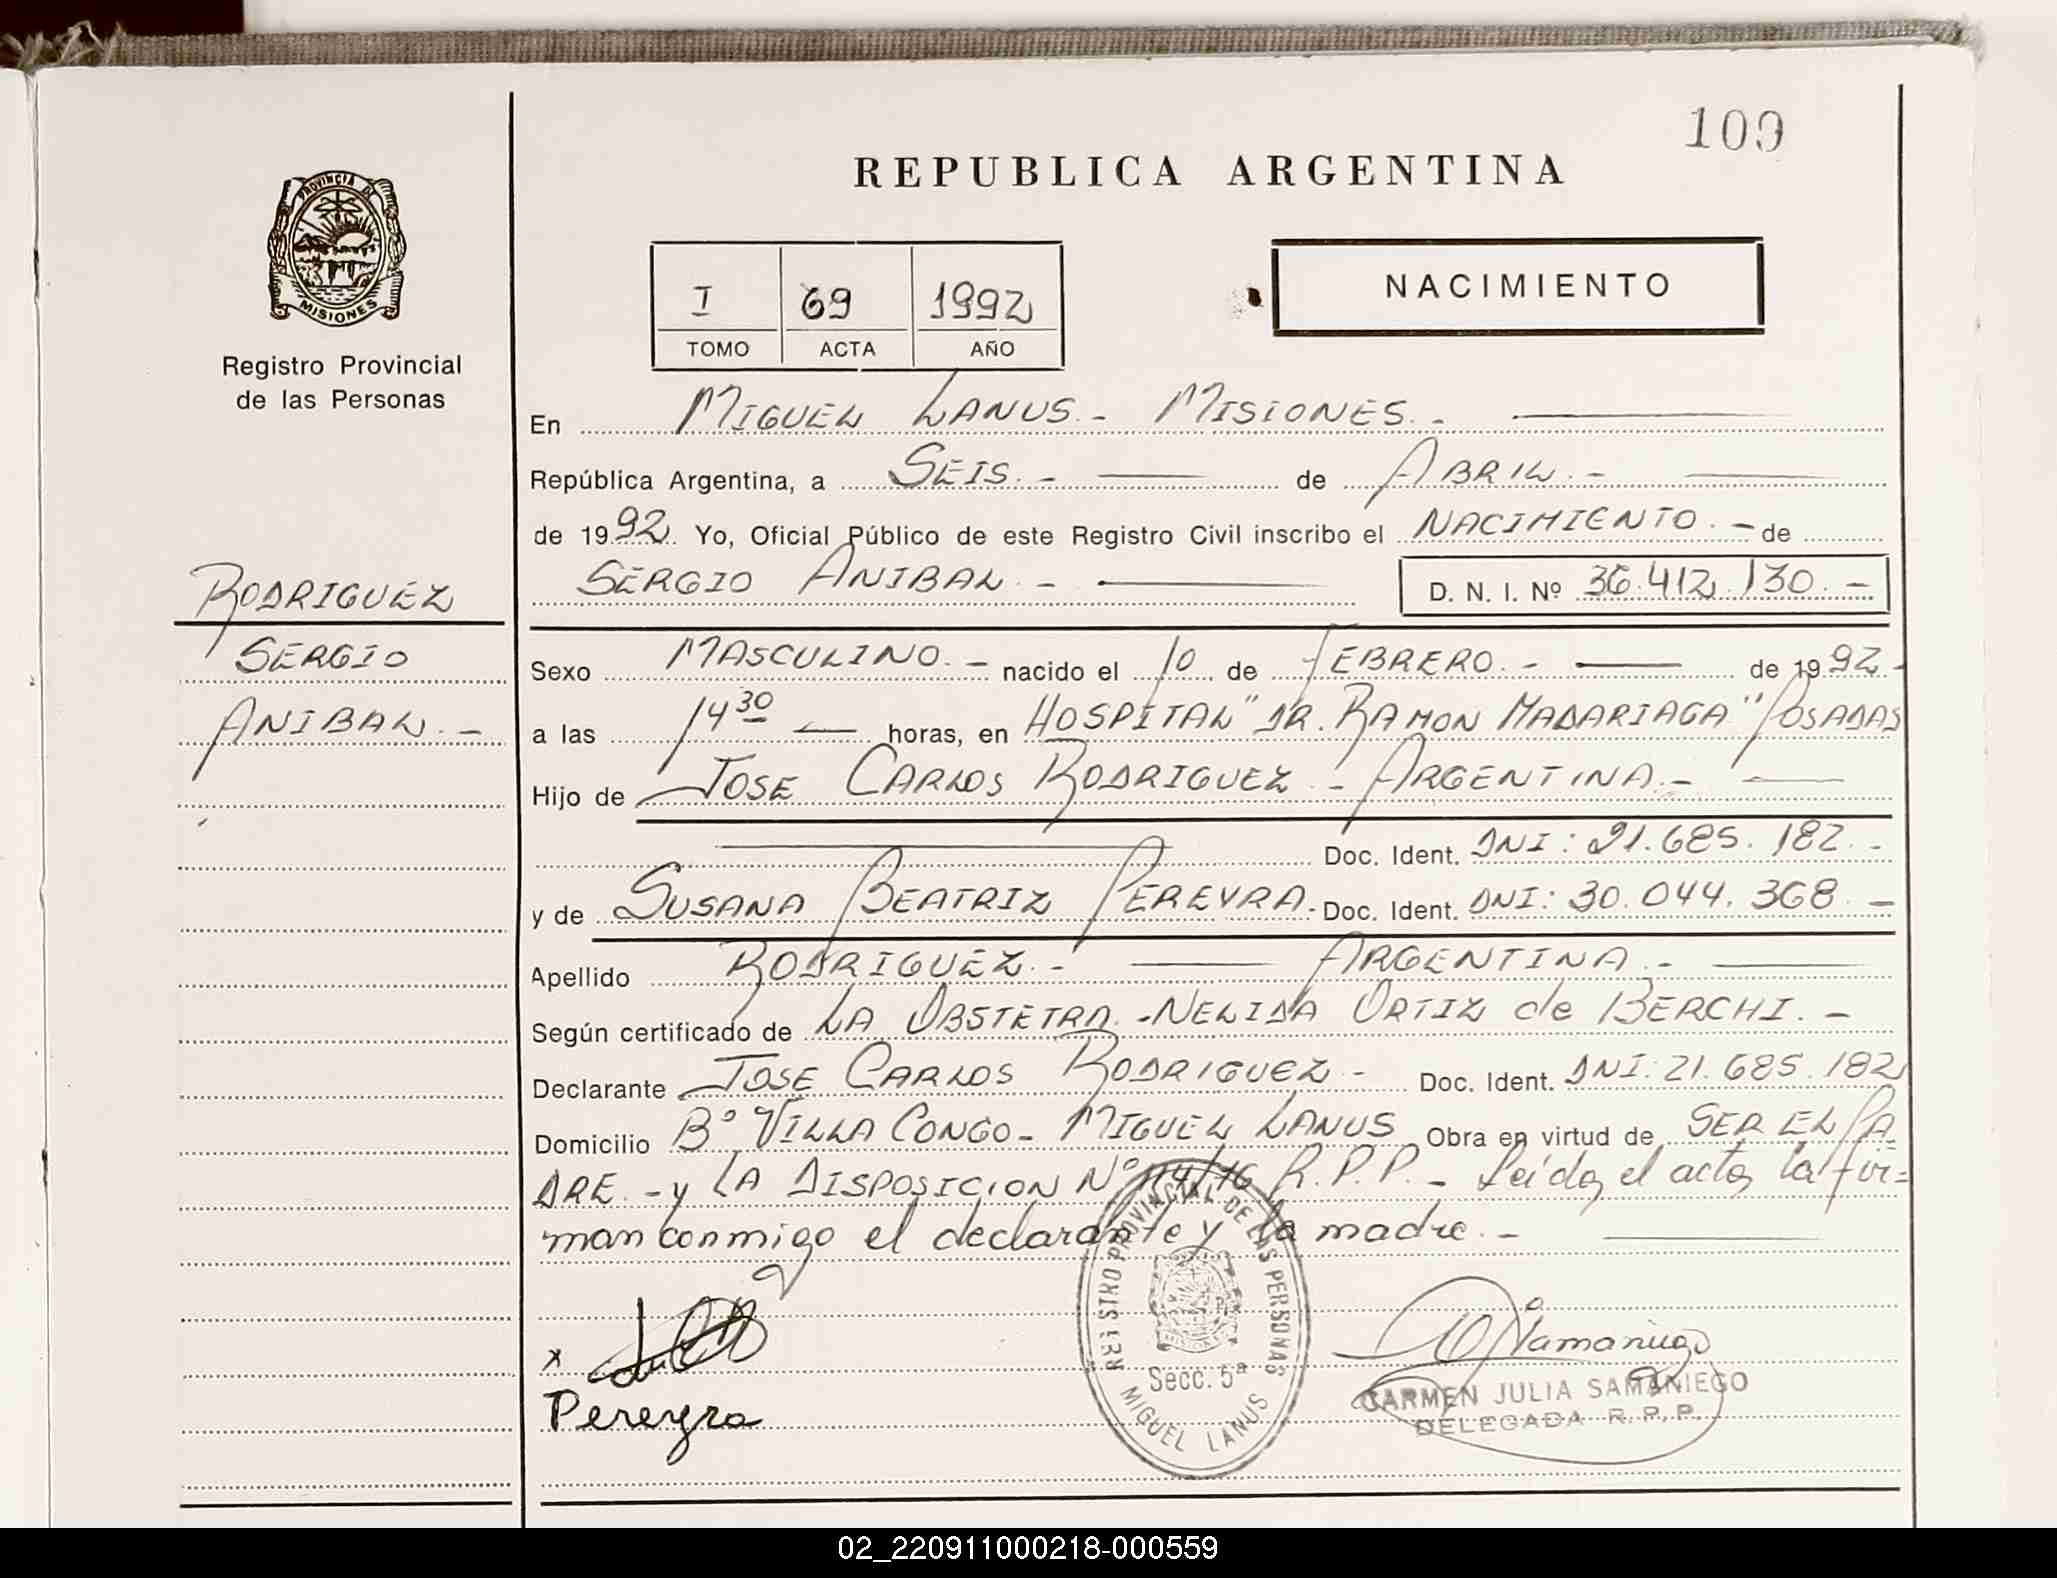 100
REPUBLICA ARGENTINA
PROVINCIA DE
MISIONES
Registro Provincial
de las Personas
I 69 1992
TOMO ACTA AÑO
NACIMIENTO
En MIGUEL LANUS.- MISIONES.-
República Argentina, a SEIS.- de ABRIL.-
de 1992. Yo, Oficial Público de este Registro Civil inscribo el NACIMIENTO.- de
SERGIO ANIBAL.- D. N. I. Nº 36.412.130.-
RODRIGUEZ
SERGIO
ANIBAL.-
Sexo MASCULINO.- nacido el 10 de FEBRERO.- de 1992-
a las 14 30 horas, en HOSPITAL "DR. RAMON MADARIAGA" POSADAS
Hijo de JOSE CARLOS RODRIGUEZ - ARGENTINA.-
Doc. Ident. DNI: 21.685.182.-
y de SUSANA BEATRIZ PEREYRA.- Doc. Ident. DNI: 30.044.368.-
Apellido RODRIGUEZ.- ARGENTINA.-
Según certificado de LA OBSTETRA.-NELIDA ORTIZ de BERCHI.-
Declarante JOSE CARLOS RODRIGUEZ- Doc. Ident. DNI: 21.685.182
Domicilio Bº VILLA CONGO- MIGUEL LANUS Obra en virtud de SER EL PA
DRE.-y LA DISPOSICION Nº 114/76 R.P.P.- Leída el acta la fir=
man conmigo el declarante y la madre.-
x
Pereyra
REGISTRO PROVINCIAL DE LAS PERSONAS
Secc. 5ª
MIGUEL LANUS
Samaniego
CARMEN JULIA SAMANIEGO
DELEGADA R.P.P.
02_220911000218-000559